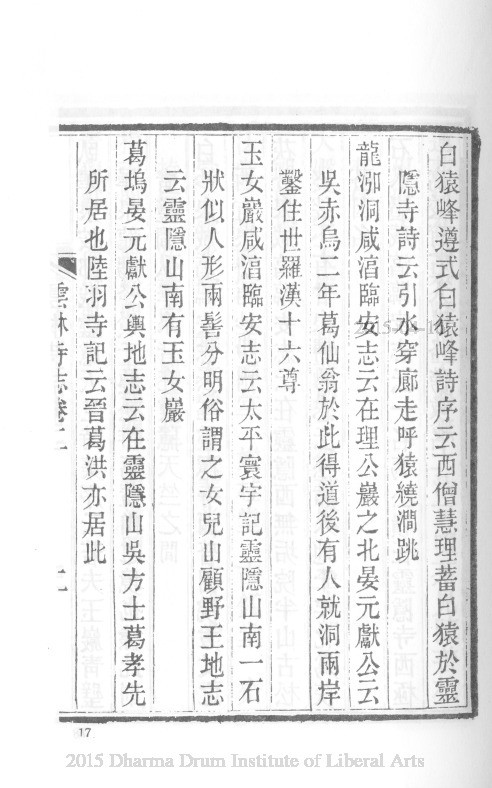 白猿峰遵式白猿峰詩序云西僧慧理蓄白猿於靈
隱寺詩云引水穿廊走呼猿繞澗跳
龍泓洞咸淳臨安志云在理公巖之北晏元獻公云
吳赤烏二年葛仙翁於此得道後有人就洞兩岸
鑿住世羅漢十六尊
玉女巖咸淳臨安志云太平寰宇記靈隱山南一石
狀似人形兩髻分明俗謂之女兒山顧野王地志
云靈隱山南有玉女巖
葛塢晏元獻公輿地志云在靈隱山吳方士葛孝先
所居也陸羽寺記云晉葛洪亦居此
雲林寺志卷二
17
2015 Dharma Drum Institute of Liberal Arts